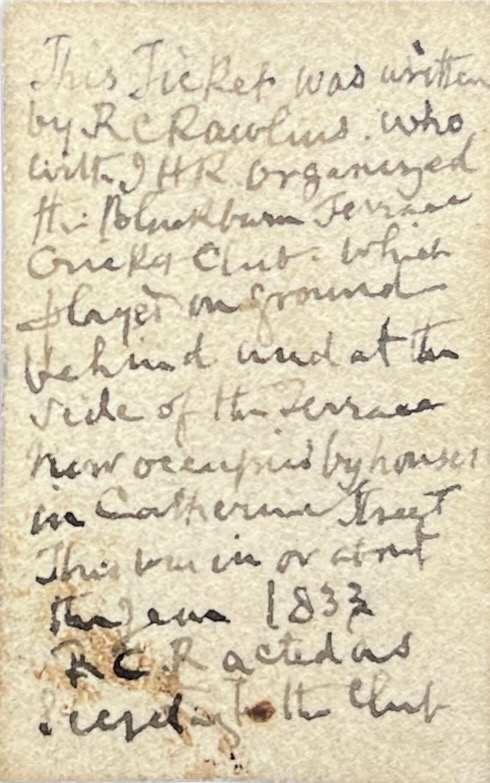 This Ticket was written
by R C Rawlins. who
with J H R organized
the Blackburn Terrace
Cricket Club. which
played on ground
behind and at the
side of the Terrace
now occupied by houses
in Catherine Street
This was in or about
the year 1833
R C R acted as
Secretary to the Club